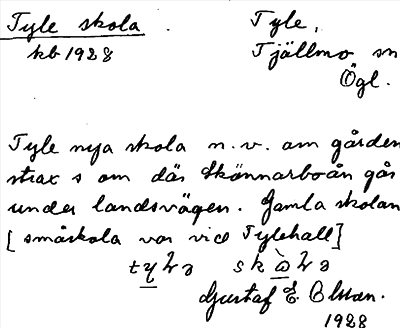 Tyle skola
Tyle,
kb 1928
Tjällmo sn
Ögl.
Tyle nya skola n.v. om gården
strax s om där Skönnarboån går
under landsvägen. Gamla skolan
[småskola var vid Tylehall]
Gustaf E. Olsson.
1928